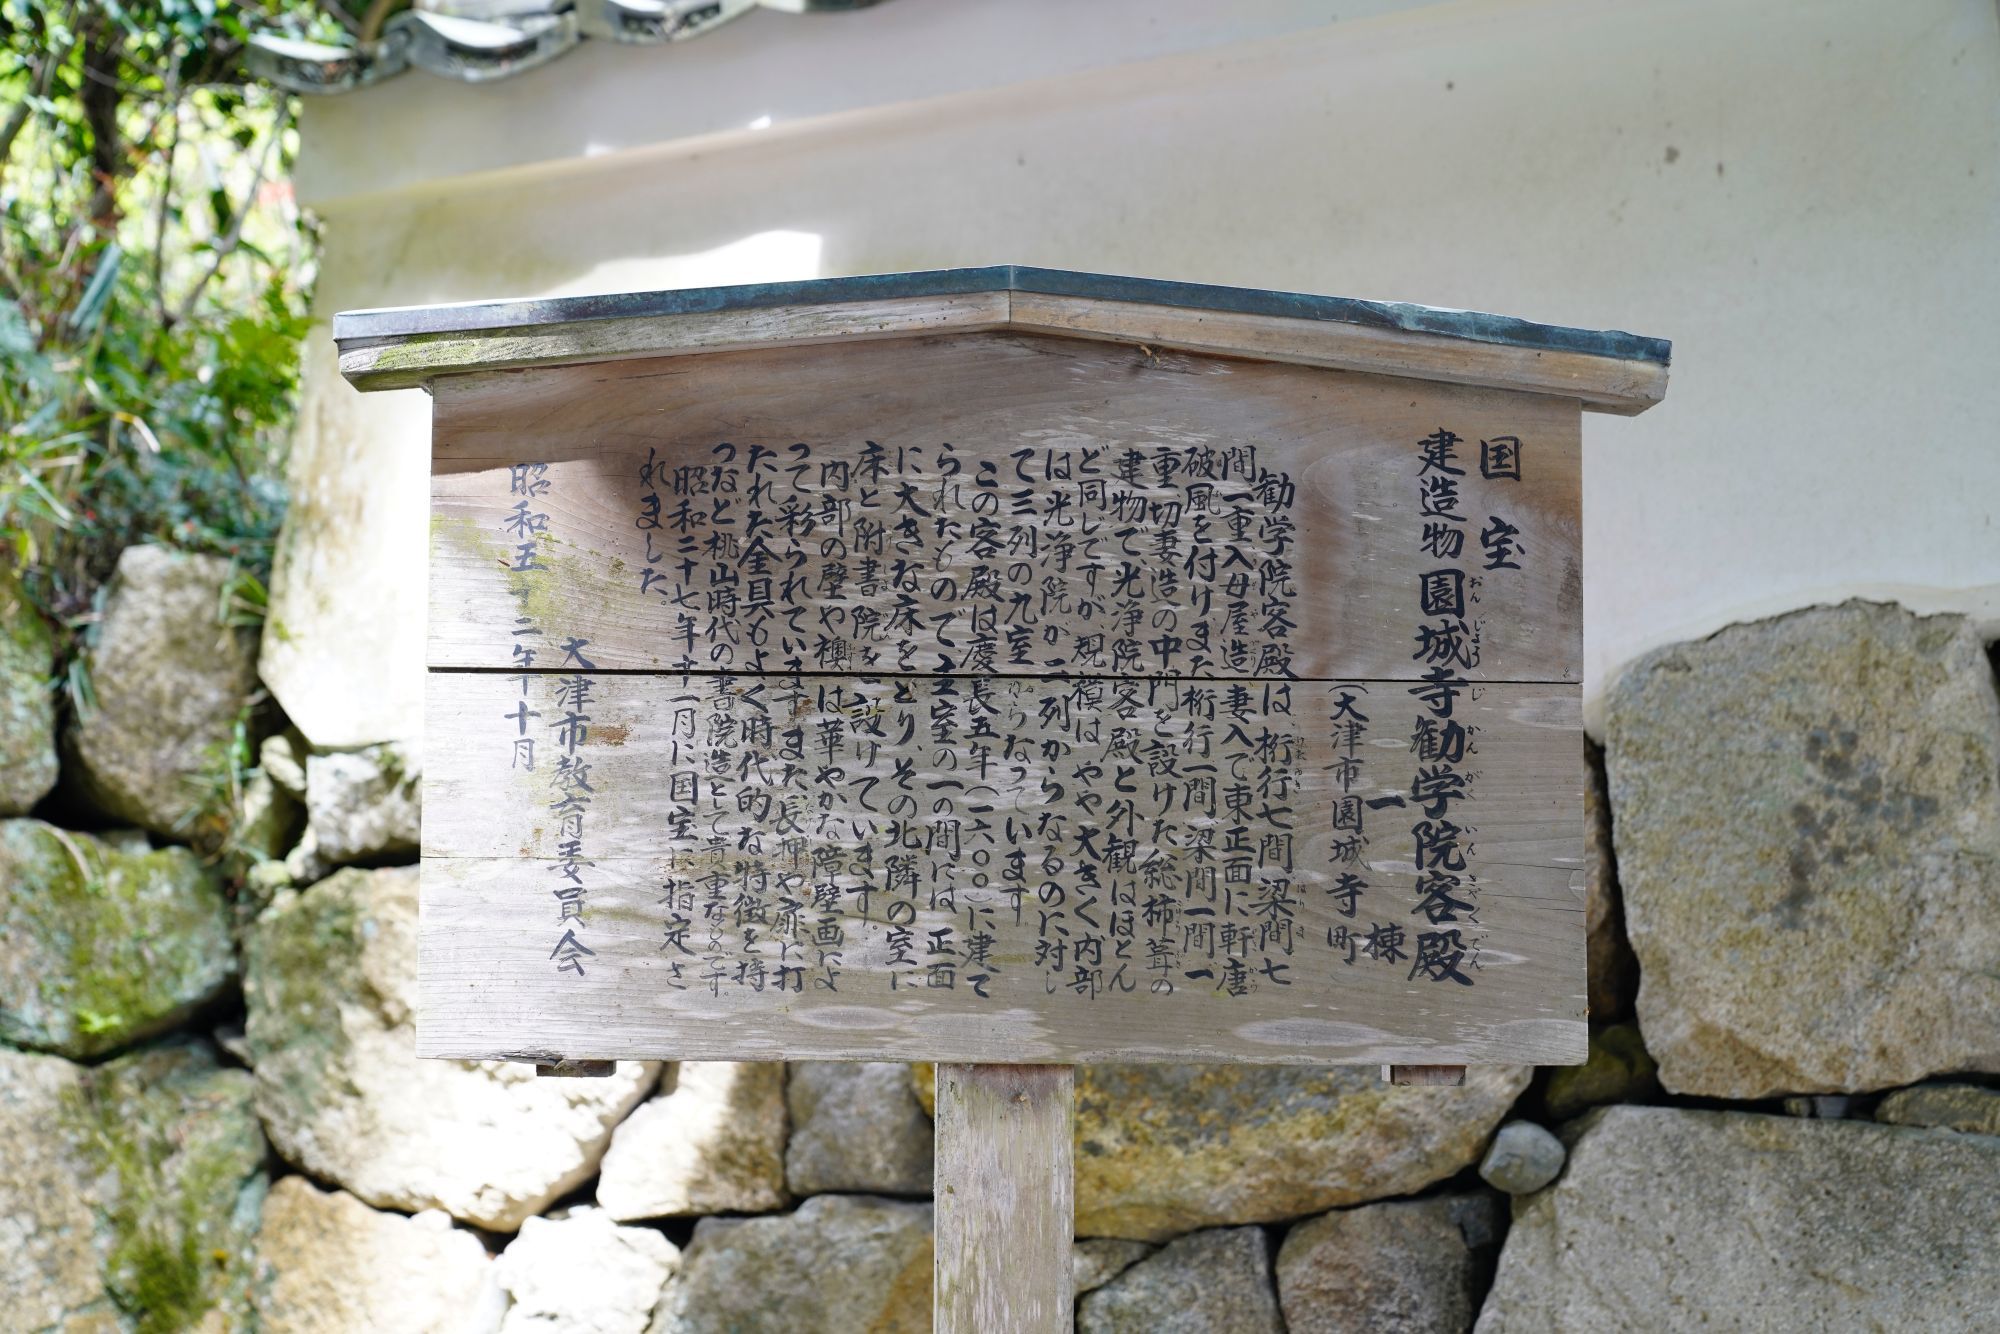 国宝
建造物 園城寺勧学院客殿
一棟
(大津市園城寺町
勧学院客殿は、桁行七間梁間七
間一重入母屋造妻入で東正面に軒唐
破風を付けまた桁行一間梁間一間一
重切妻造の中門を設けた総柿葺の
建物で、光浄院客殿と外観はほとん
ど同じですが、規模は、やや大きく内部
は光浄院が二列からなるのに対し
て三列の九室からなっています
この客殿は慶長五年(一六〇〇)に建て
られたもので主室の一の間には、正面
に大きな床をとり、その北隣の室に
床と附書院を設けています。
内部の壁や襖は華やかな障壁画によ
って彩られています。また、長押や扉に打
たれた金具もよく時代的な特徴を持
つなど桃山時代の書院造として貴重なものです。
昭和二十七年十一月に国宝に指定さ
れました。
大津市教育委員会
昭和五十二年十月